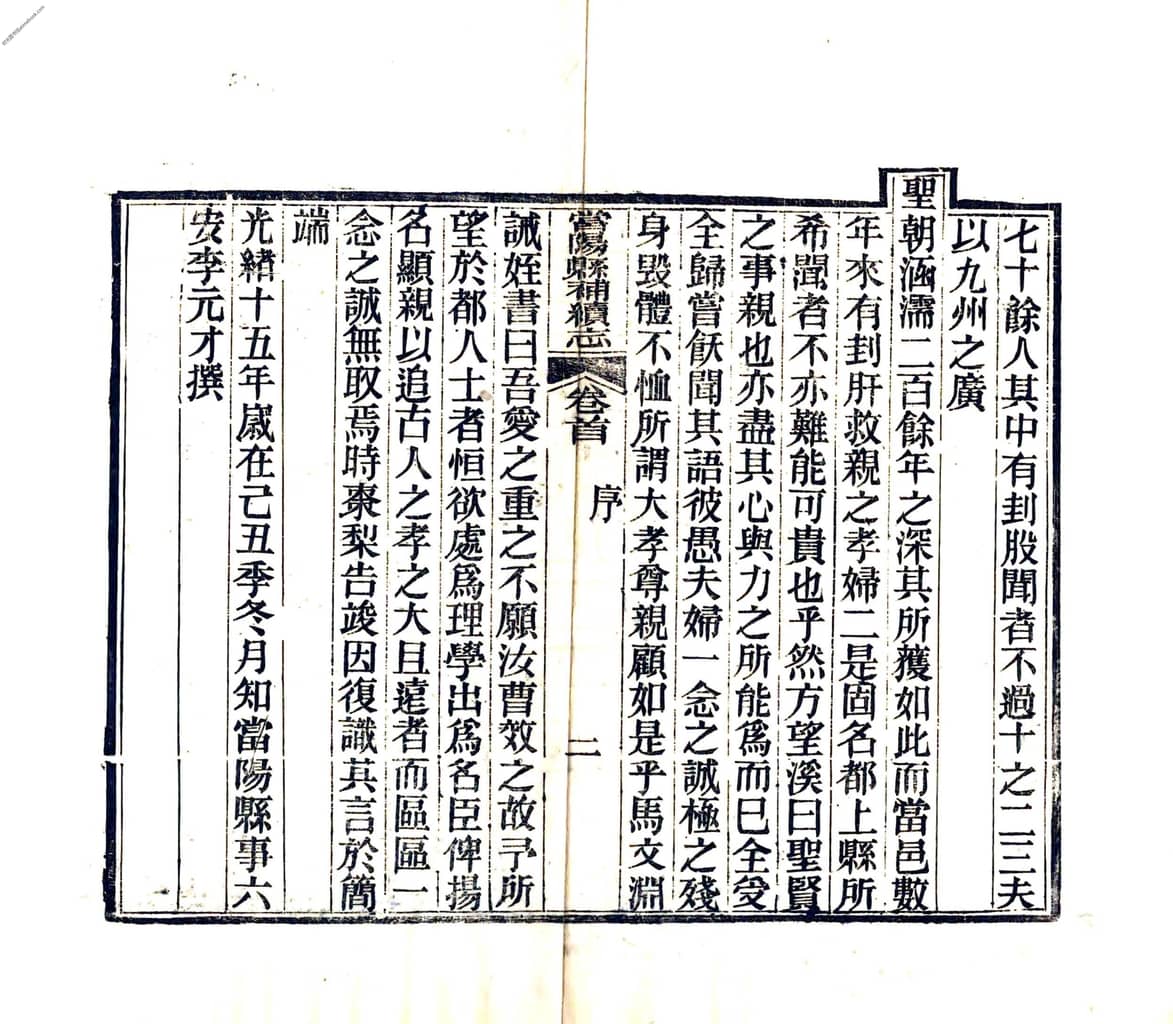 七十餘人其中有刲股聞者不過十之二三夫
以九州之廣
聖朝涵濡二百餘年之深其所薙如此而當邑數
年來有刲肝救親之孝婦二是固名都上縣所
希聞者不亦難能可貴也乎然方望溪曰聖賢
之事親也亦盡其心與力之所能爲而已全受
全歸嘗飫聞其語彼愚夫婦一念之誠極之殘
身毀體不恤所謂大孝尊親顧如是乎馬文淵
當陽縣補續志 卷首 序 二
誡姪書曰吾愛之重之不願汝曹效之故予所
望於都人士者恒欲處爲理學出爲名臣俾揚
名顯親以追古人之孝之大且遠者而區區一
念之誠無取焉時棗梨告竣因復識其言於簡
端
光緒十五年歲在己丑季冬月知當陽縣事六
安李元才撰